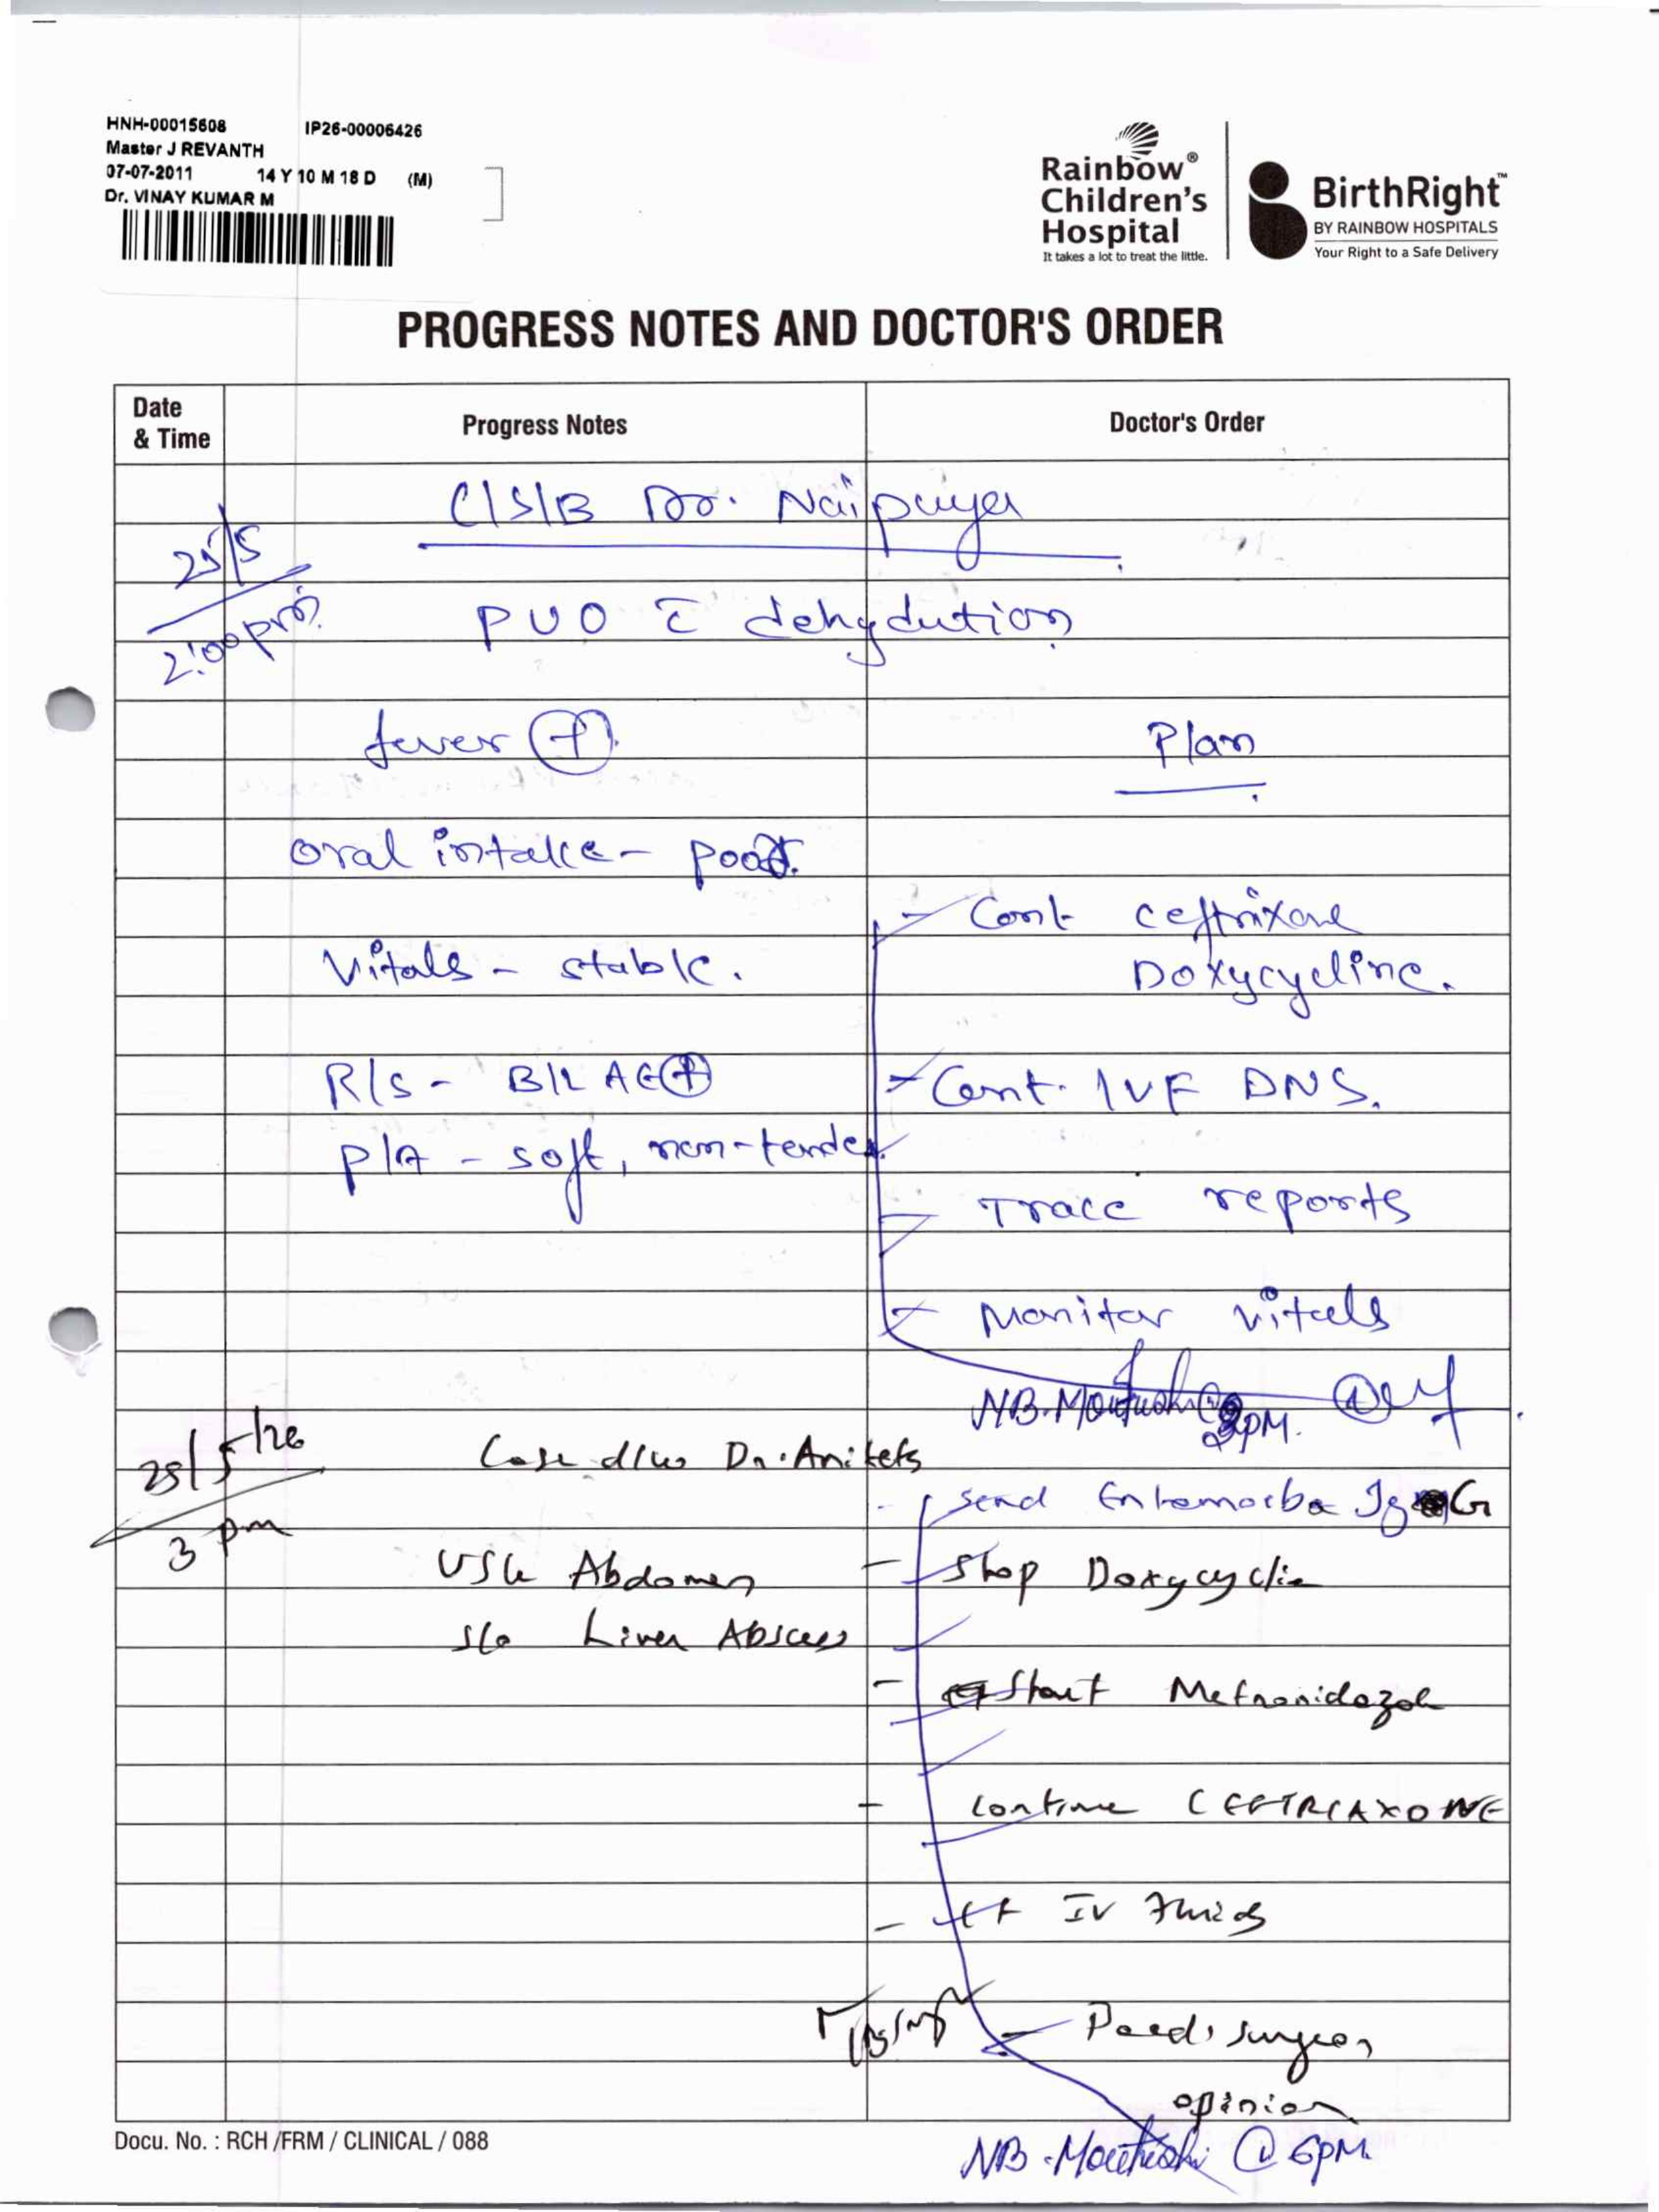 HNH-00015608 IP26-00006426
Master J REVANTH
07-07-2011 14 Y 10 M 18 D (M)
Dr. VINAY KUMAR M
Rainbow®
Children's
Hospital
It takes a lot to treat the little.
BirthRight™
BY RAINBOW HOSPITALS
Your Right to a Safe Delivery
PROGRESS NOTES AND DOCTOR'S ORDER
Date
& Time
Progress Notes
Doctor's Order
C/S/B Dr.
25/5
2:00pm
PUO c̄ dehydution
fever (+)
Plan
oral intake - poor.
- Cont ceftrixone
Doxycycline.
Vitals - stable.
R/S - B/L AE(+)
- Cont. IVF DNS.
P/A - soft, non-tender.
- Trace reports
- Monitor vitals
NB. @ 2PM.
25/5/26
3 pm
Case d/w Dr. Anikets
- send Entamoeba Ig G
USG Abdomen
- Stop Doxycyclin
s/o Liver Abscess
- Start Metronidazole
- Continue CEFTRIAXONE
- Ct IV fluids
- Paed. surgeon
opinion
Docu. No. : RCH /FRM / CLINICAL / 088
NB. @ 6PM